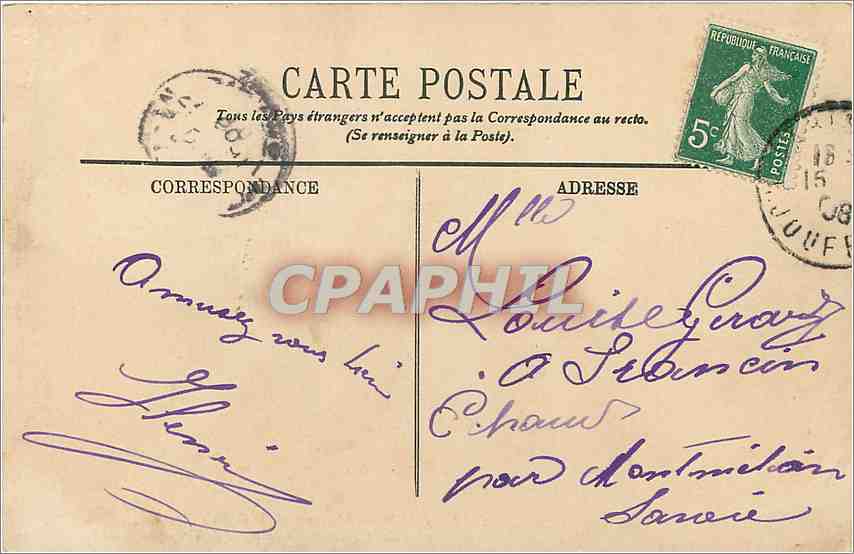 CARTE POSTALE
Tous les Pays étrangers n'acceptent pas la Correspondance au recto.
(Se renseigner à la Poste).
RÉPUBLIQUE FRANÇAISE
5c
POSTES
CORRESPONDANCE
ADRESSE
Amusez vous bien
Henri
Mlle
Louise Girard
à Francin
par Montmélian
Savoie
15
08
CPAPHIL